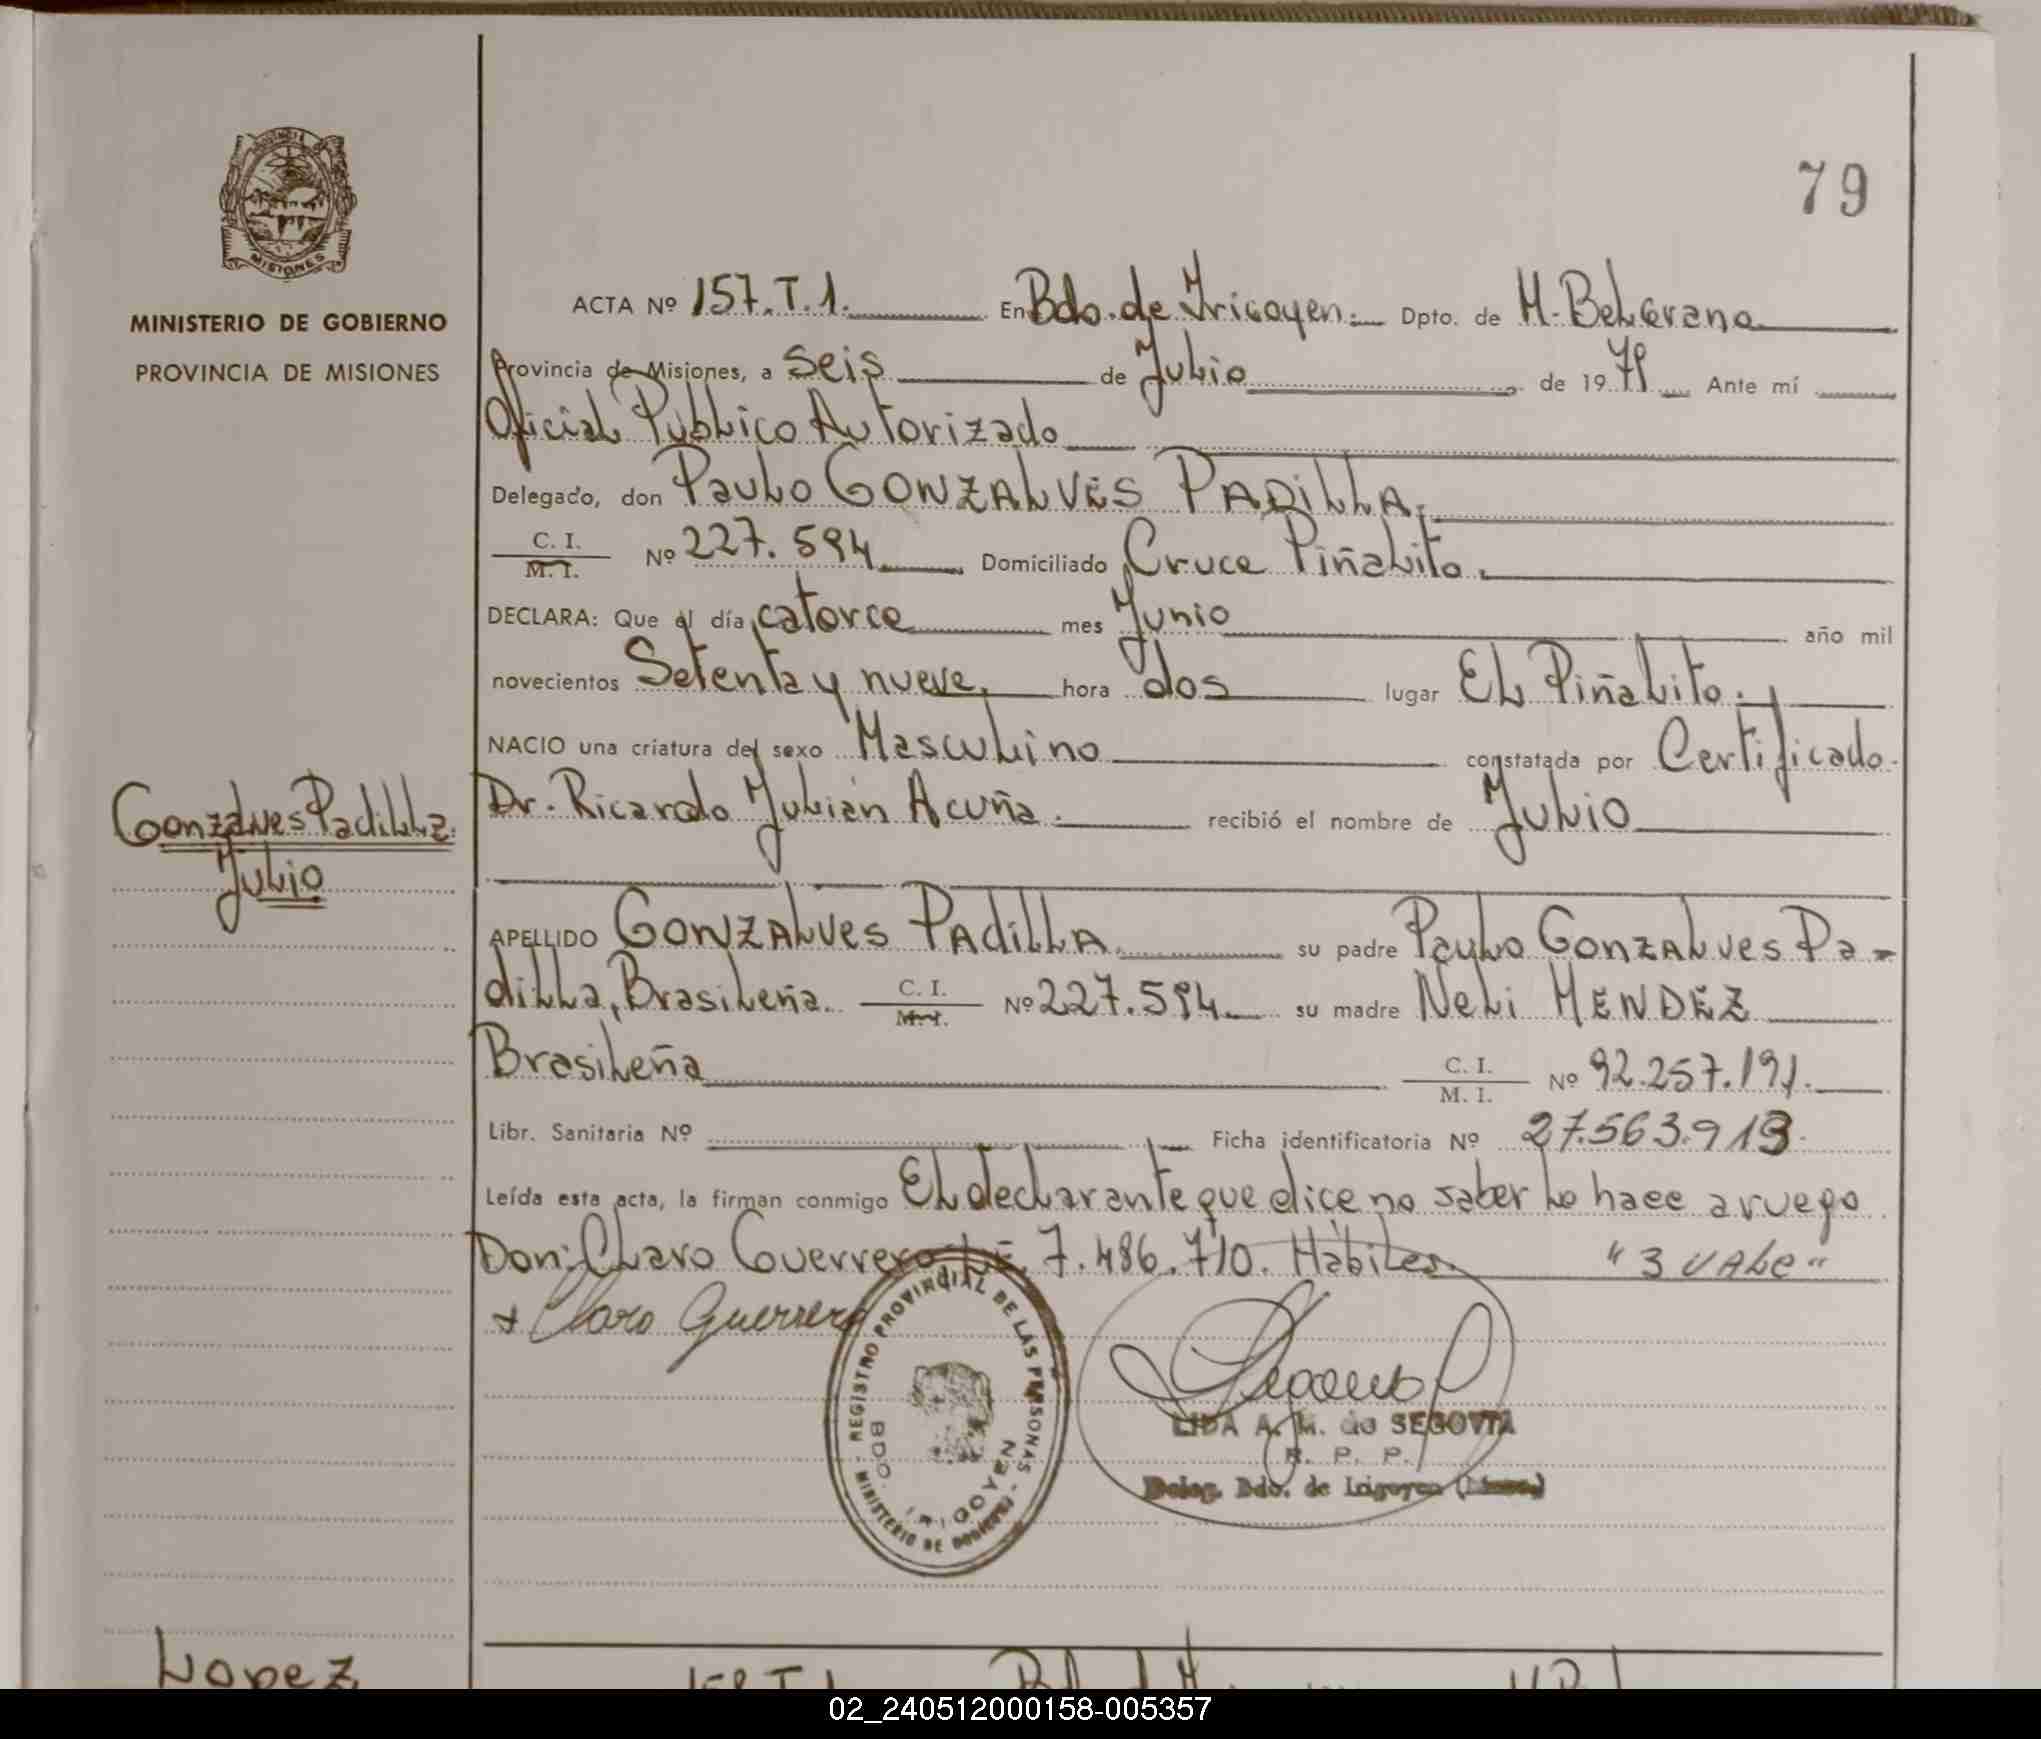 79
PROVINCIA
MISIONES
MINISTERIO DE GOBIERNO
PROVINCIA DE MISIONES
ACTA Nº 157.T.1. En Bdo. de Yrigoyen. Dpto. de M. Belgrano
Provincia de Misiones, a Seis de Julio de 1979 Ante mí
Oficial Público Autorizado
Delegado, don Paulo GONZALVES PADILLA.
C. I. M. I. Nº 227.594 Domiciliado Cruce Piñalito.
DECLARA: Que el día catorce mes Junio año mil
novecientos Setenta y nueve, hora dos lugar El Piñalito.
NACIO una criatura del sexo Masculino constatada por Certificado.
Dr. Ricardo Julián Acuña. recibió el nombre de Julio
Gonzalves Padilla.
Julio
APELLIDO GONZALVES PADILLA. su padre Paulo Gonzalves Pa-
dilla, Brasileña. C. I. M. I. Nº 227.594 su madre Neli MENDEZ
Brasileña C. I. M. I. Nº 92.257.191.
Libr. Sanitaria Nº Ficha identificatoria Nº 27.563.913.
Leída esta acta, la firman conmigo El declarante que dice no saber lo hace a ruego
Don: Claro Guerrero L.E. 7.486.710. Hábiles. "3 VALE"
Claro Guerrero
REGISTRO PROVINCIAL DE LAS PERSONAS - MINISTERIO DE GOBIERNO -
BDO. IRIGOYEN
LIDA A. M. de SEGOVIA
R. P. P.
Deleg. Bdo. de Irigoyen
Lopez
158.T.1
02_240512000158-005357